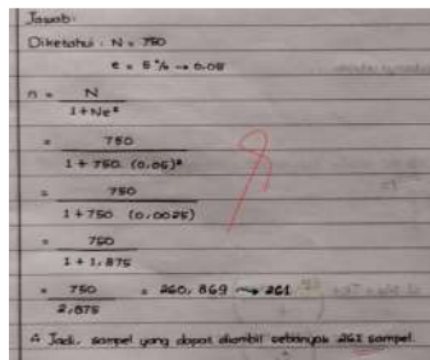 Jawab:
Diketahui : N = 750
e = 5% → 0.05
n = N
1 + Ne²
= 750
1 + 750 (0,05)²
= 750
1 + 750 (0,0025)
= 750
1 + 1,875
= 750 = 260,869 ⤳ 261
2,875
∴ Jadi, sampel yang dapat diambil sebanyak 261 sampel.